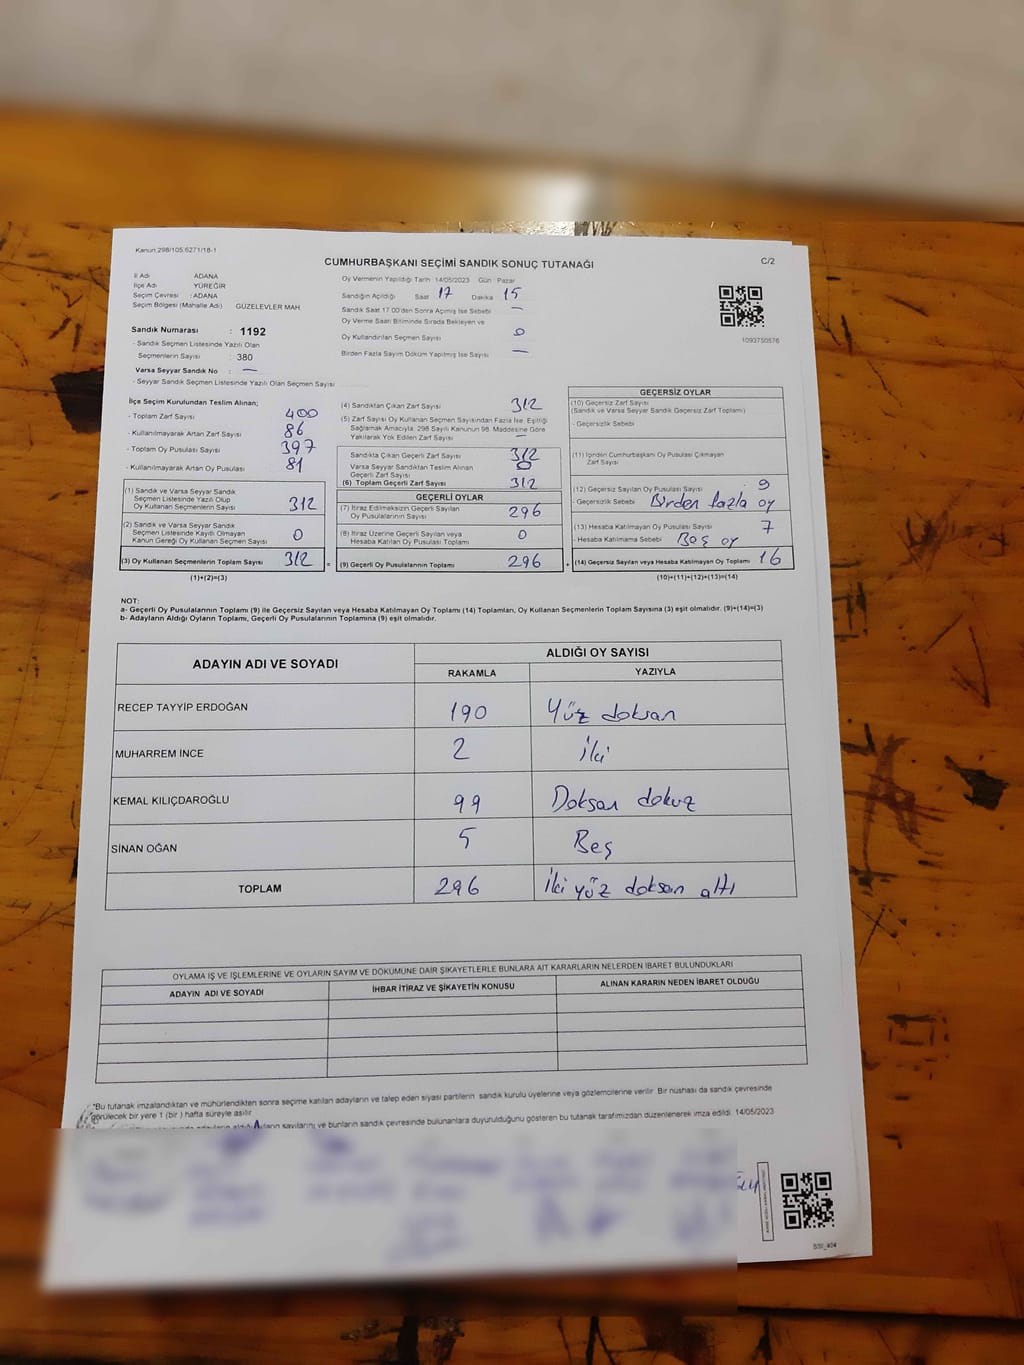 Kanun:298/105,6271/18-1
CUMHURBAŞKANI SEÇİMİ SANDIK SONUÇ TUTANAĞI
C/2
İl Adı ADANA
İlçe Adı YÜREĞİR
Seçim Çevresi : ADANA
Seçim Bölgesi (Mahalle Adı) GÜZELEVLER MAH
Sandık Numarası : 1192
- Sandık Seçmen Listesinde Yazılı Olan
Seçmenlerin Sayısı : 380
Varsa Seyyar Sandık No : —
- Seyyar Sandık Seçmen Listesinde Yazılı Olan Seçmen Sayısı
Oy Vermenin Yapıldığı Tarih : 14/05/2023 Gün : Pazar
Sandığın Açıldığı Saat 17 Dakika 15
Sandık Saat 17.00'den Sonra Açılmış İse Sebebi —
Oy Verme Saati Bitiminde Sırada Bekleyen ve
Oy Kullandırılan Seçmen Sayısı 0
Birden Fazla Sayım Döküm Yapılmış İse Sayısı —
1093750576
İlçe Seçim Kurulundan Teslim Alınan;
- Toplam Zarf Sayısı 400
- Kullanılmayarak Artan Zarf Sayısı 86
- Toplam Oy Pusulası Sayısı 397
- Kullanılmayarak Artan Oy Pusulası 81
(1) Sandık ve Varsa Seyyar Sandık
Seçmen Listesinde Yazılı Olup
Oy Kullanan Seçmenlerin Sayısı 312
(2) Sandık ve Varsa Seyyar Sandık
Seçmen Listesinde Kayıtlı Olmayan
Kanun Gereği Oy Kullanan Seçmen Sayısı 0
(3) Oy Kullanan Seçmenlerin Toplam Sayısı 312 =
(1)+(2)=(3)
(4) Sandıktan Çıkan Zarf Sayısı 312
(5) Zarf Sayısı Oy Kullanan Seçmen Sayısından Fazla İse, Eşitliği
Sağlamak Amacıyla, 298 Sayılı Kanunun 98. Maddesine Göre
Yakılarak Yok Edilen Zarf Sayısı —
Sandıkta Çıkan Geçerli Zarf Sayısı 312
Varsa Seyyar Sandıktan Teslim Alınan
Geçerli Zarf Sayısı 0
(6) Toplam Geçerli Zarf Sayısı 312
GEÇERLİ OYLAR
(7) İtiraz Edilmeksizin Geçerli Sayılan
Oy Pusulalarının Sayısı 296
(8) İtiraz Üzerine Geçerli Sayılan veya
Hesaba Katılan Oy Pusulası Toplamı 0
(9) Geçerli Oy Pusulalarının Toplamı 296 +
GEÇERSİZ OYLAR
(10) Geçersiz Zarf Sayısı
(Sandık ve Varsa Seyyar Sandık Geçersiz Zarf Toplamı)
- Geçersizlik Sebebi
(11) İçinden Cumhurbaşkanı Oy Pusulası Çıkmayan
Zarf Sayısı
(12) Geçersiz Sayılan Oy Pusulası Sayısı : 9
- Geçersizlik Sebebi Birden fazla oy
(13) Hesaba Katılmayan Oy Pusulası Sayısı 7
- Hesaba Katılmama Sebebi Boş oy
(14) Geçersiz Sayılan veya Hesaba Katılmayan Oy Toplamı 16
(10)+(11)+(12)+(13)=(14)
NOT:
a- Geçerli Oy Pusulalarının Toplamı (9) ile Geçersiz Sayılan veya Hesaba Katılmayan Oy Toplamı (14) Toplamları, Oy Kullanan Seçmenlerin Toplam Sayısına (3) eşit olmalıdır. (9)+(14)=(3)
b- Adayların Aldığı Oyların Toplamı, Geçerli Oy Pusulalarının Toplamına (9) eşit olmalıdır.
ADAYIN ADI VE SOYADI ALDIĞI OY SAYISI
RAKAMLA YAZIYLA
RECEP TAYYİP ERDOĞAN 190 Yüz doksan
MUHARREM İNCE 2 İki
KEMAL KILIÇDAROĞLU 99 Doksan dokuz
SİNAN OĞAN 5 Beş
TOPLAM 296 İki yüz doksan altı
OYLAMA İŞ VE İŞLEMLERİNE VE OYLARIN SAYIM VE DÖKÜMÜNE DAİR ŞİKAYETLERLE BUNLARA AİT KARARLARIN NELERDEN İBARET BULUNDUKLARI
ADAYIN ADI VE SOYADI İHBAR İTİRAZ VE ŞİKAYETİN KONUSU ALINAN KARARIN NEDEN İBARET OLDUĞU
*Bu tutanak imzalandıktan ve mühürlendikten sonra seçime katılan adayların ve talep eden siyasi partilerin sandık kurulu üyelerine veya gözlemcilerine verilir. Bir nüshası da sandık çevresinde
görülecek bir yere 1 (bir ) hafta süreyle asılır.
sayılarını ve bunların sandık çevresinde bulunanlara duyurulduğunu gösteren bu tutanak tarafımızdan düzenlenerek imza edildi. 14/05/2023